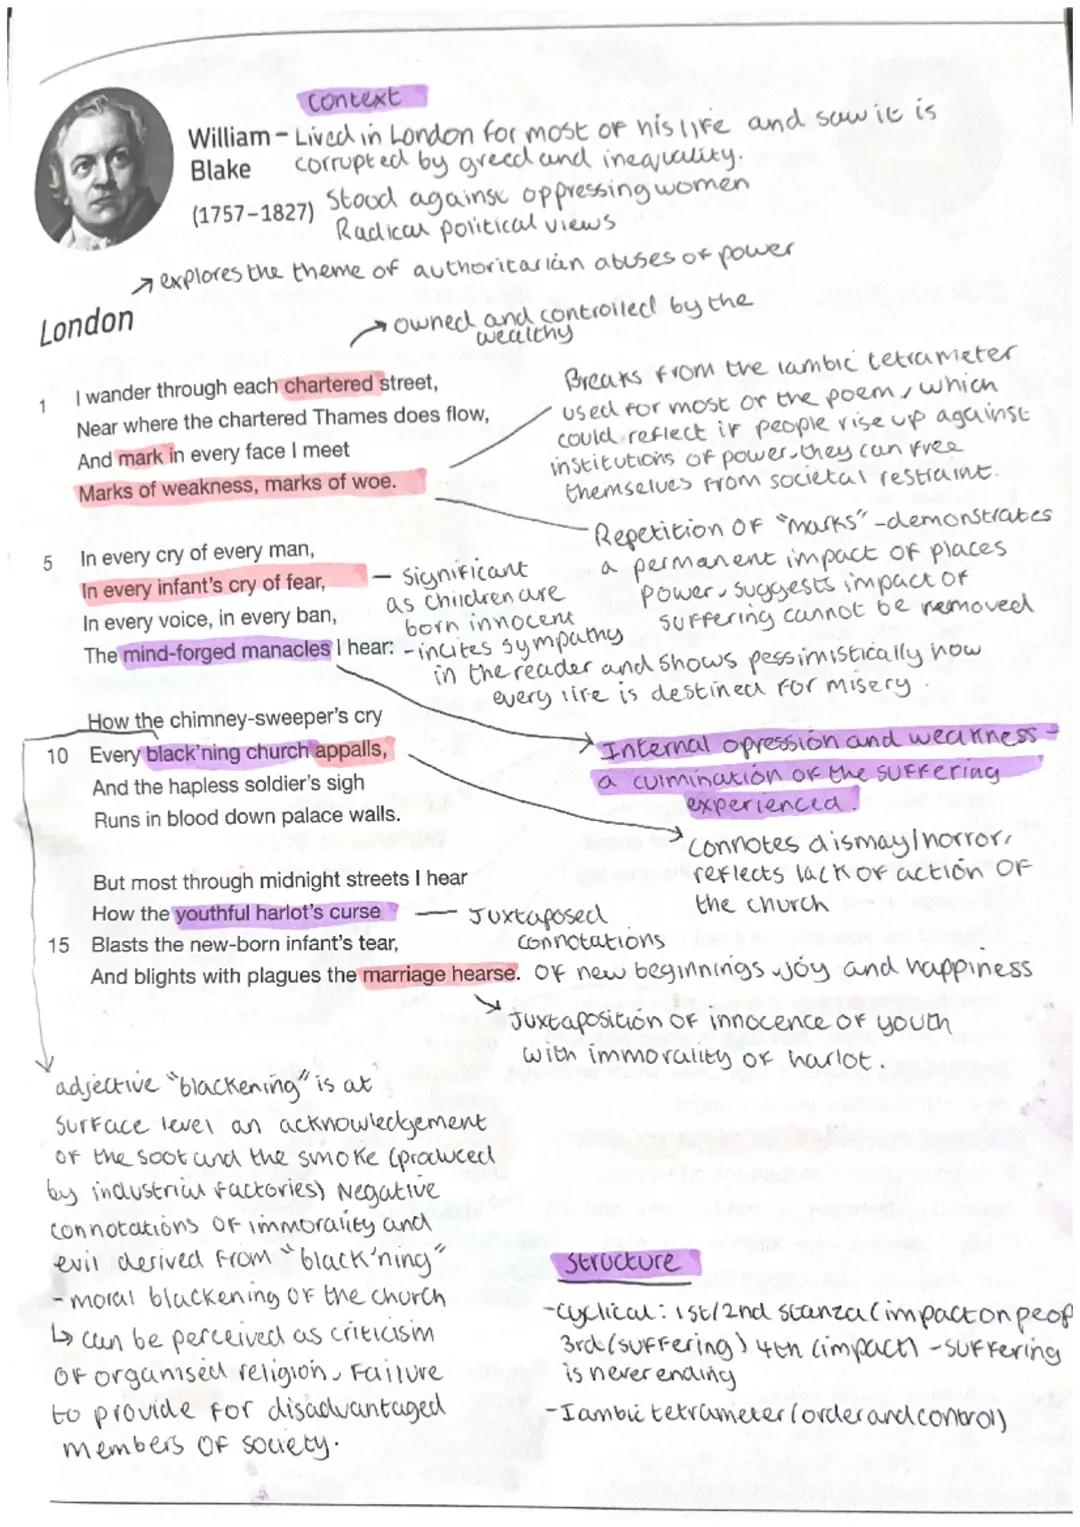 context
William - Lived in London for most of his life and saw it is
Blake corrupted by greed and inequality.
(1757–1827) Stood against oppressing women
Radical political views
→ explores the theme of authoritarian abuses of power
London
→ owned and controlled by the
wealthy
1 I wander through each chartered street,
Near where the chartered Thames does flow,
And mark in every face I meet
Marks of weakness, marks of woe.
Breaks from the iambic tetrameter
used for most of the poem, which
could reflect if people rise up against
institutions of power, they can free
themselves from societal restraint.
Repetition of "marks" - demonstrates
a permanent impact of places
power, suggests impact of
suffering cannot be removed
5 In every cry of every man,
In every infant's cry of fear,
In every voice, in every ban,
The mind-forged manacles I hear:
- significant
as children are
born innocent
- incites sympathy
in the reader and shows pessimistically how
every life is destined for misery.
How the chimney-sweeper's cry
10 Every black'ning church appalls,
And the hapless soldier's sigh
Runs in blood down palace walls.
Internal opression and weakness -
a culmination of the suffering
experienced.
connotes dismay/horror,
reflects lack of action of
the church
But most through midnight streets I hear
How the youthful harlot's curse
15 Blasts the new-born infant's tear,
And blights with plagues the marriage hearse.
— Juxtaposed
connotations
of new beginnings, joy and happiness
Juxtaposition of innocence of youth
with immorality of harlot.
adjective "blackening" is at
surface level an acknowledgement
of the soot and the smoke (produced
by industrial factories) Negative
connotations of immorality and
evil derived from "black'ning"
- moral blackening of the church
↳ can be perceived as criticism
of organised religion, Failure
to provide for disadvantaged
members of society.
structure
- cyclical: 1st/2nd stanza (impact on peop
3rd (suffering) 4th (impact) - suffering
is never ending
- Iambic tetrameter (order and control)